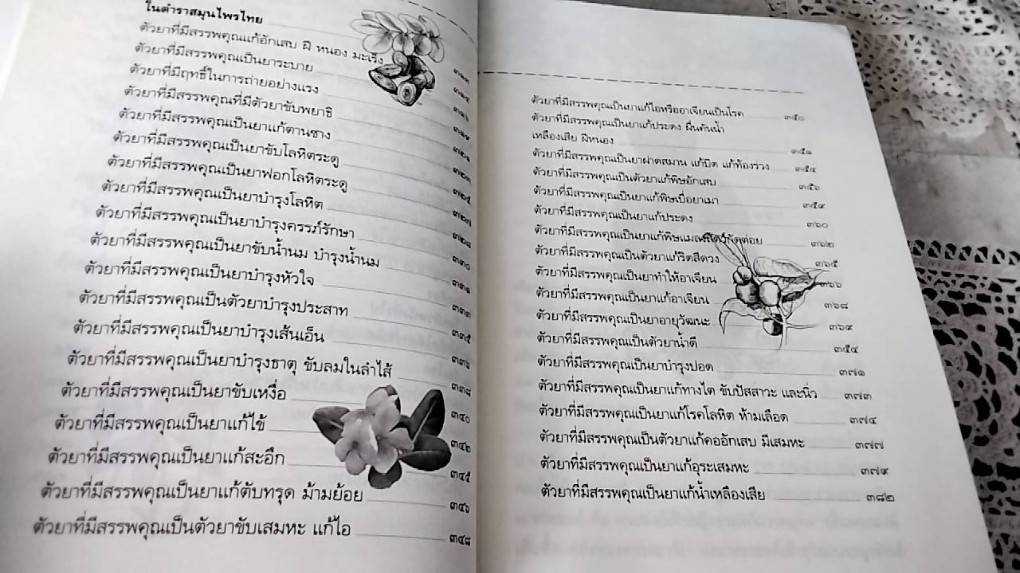 ในตำราสมุนไพรไทย
ตัวยาที่มีสรรพคุณแก้อักเสบ ฝี หนอง มะเร็ง
ตัวยาที่มีสรรพคุณเป็นยาระบาย
ตัวยาที่มีฤทธิ์ในการถ่ายอย่างแรง
ตัวยาที่มีสรรพคุณที่มีตัวยาขับพยาธิ
ตัวยาที่มีสรรพคุณเป็นยาแก้ตานซาง
ตัวยาที่มีสรรพคุณเป็นยาขับโลหิตระดู
ตัวยาที่มีสรรพคุณเป็นยาฟอกโลหิตระดู
ตัวยาที่มีสรรพคุณเป็นยาบำรุงโลหิต
ตัวยาที่มีสรรพคุณเป็นยาบำรุงครรภ์รักษา
ตัวยาที่มีสรรพคุณเป็นยาขับน้ำนม บำรุงน้ำนม
ตัวยาที่มีสรรพคุณเป็นยาบำรุงหัวใจ
ตัวยาที่มีสรรพคุณเป็นตัวยาบำรุงประสาท
ตัวยาที่มีสรรพคุณเป็นยาบำรุงเส้นเอ็น
ตัวยาที่มีสรรพคุณเป็นยาบำรุงธาตุ ขับลมในลำไส้ ๓๓๘
ตัวยาที่มีสรรพคุณเป็นยาขับเหงื่อ ๓๔๐
ตัวยาที่มีสรรพคุณเป็นยาแก้ไข้ ๓๔๒
ตัวยาที่มีสรรพคุณเป็นยาแก้สะอึก ๓๔๕
ตัวยาที่มีสรรพคุณเป็นยาแก้ตับทรุด ม้ามย้อย ๓๔๖
ตัวยาที่มีสรรพคุณเป็นตัวยาขับเสมหะ แก้ไอ ๓๔๘
ตัวยาที่มีสรรพคุณเป็นยาแก้ไอหรืออาเจียนเป็นโรค ๓๕๐
ตัวยาที่มีสรรพคุณเป็นยาแก้ประดง ผื่นคันน้ำ
เหลืองเสีย ฝีหนอง ๓๕๑
ตัวยาที่มีสรรพคุณเป็นยาฝาดสมาน แก้บิด แก้ท้องร่วง ๓๕๔
ตัวยาที่มีสรรพคุณเป็นตัวยาแก้พิษอักเสบ ๓๕๖
ตัวยาที่มีสรรพคุณเป็นยาแก้พิษเบื่อยาเมา ๓๕๙
ตัวยาที่มีสรรพคุณเป็นยาแก้ประดง ๓๖๐
ตัวยาที่มีสรรพคุณเป็นยาแก้พิษแมลงสัตว์กัดต่อย ๓๖๒
ตัวยาที่มีสรรพคุณเป็นตัวยาแก้ริดสีดวง ๓๖๕
ตัวยาที่มีสรรพคุณเป็นยาทำให้อาเจียน ๓๖๖
ตัวยาที่มีสรรพคุณเป็นยาแก้อาเจียน ๓๖๘
ตัวยาที่มีสรรพคุณเป็นยาอายุวัฒนะ ๓๖๙
ตัวยาที่มีสรรพคุณเป็นตัวยาน้ำดี ๓๕๔
ตัวยาที่มีสรรพคุณเป็นยาบำรุงปอด ๓๗๑
ตัวยาที่มีสรรพคุณเป็นยาแก้ทางไต ขับปัสสาวะ และนิ่ว ๓๗๓
ตัวยาที่มีสรรพคุณเป็นยาแก้โรคโลหิต ห้ามเลือด ๓๗๔
ตัวยาที่มีสรรพคุณเป็นตัวยาแก้คออักเสบ มีเสมหะ ๓๗๗
ตัวยาที่มีสรรพคุณเป็นยาแก้อุระเสมหะ ๓๗๙
ตัวยาที่มีสรรพคุณเป็นยาแก้น้ำเหลืองเสีย ๓๘๒